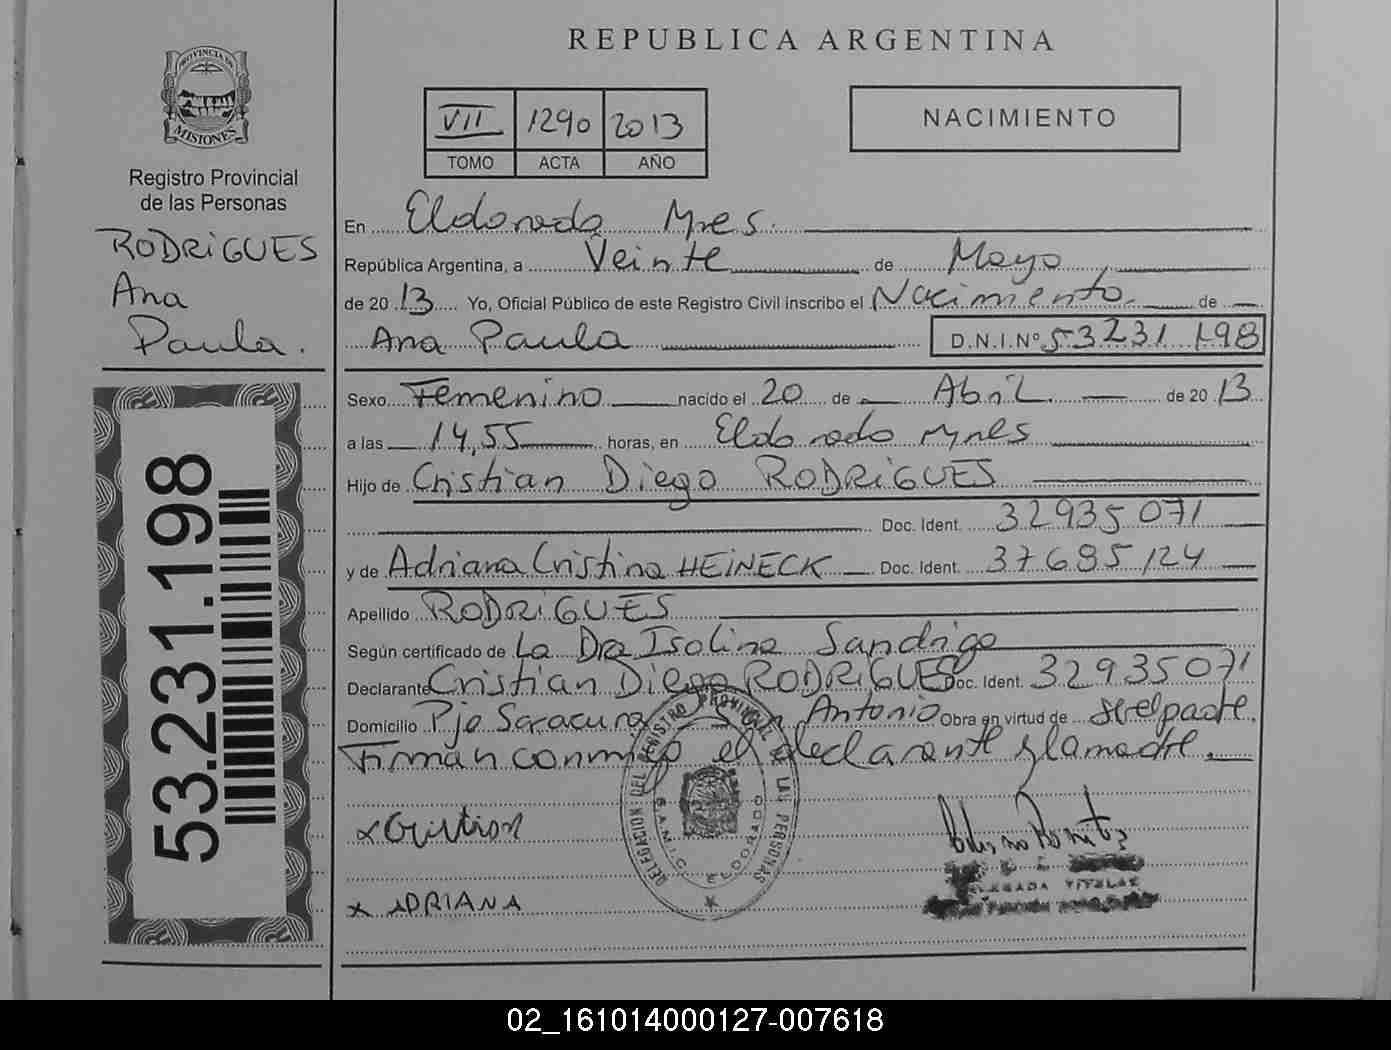 REPUBLICA ARGENTINA
PROVINCIA DE
MISIONES
Registro Provincial
de las Personas
RODRIGUES
Ana
Paula.
53.231.198
VII 1290 2013
TOMO ACTA AÑO
NACIMIENTO
En Eldorado Mnes.
República Argentina, a Veinte de Mayo
de 20 13 Yo, Oficial Público de este Registro Civil inscribo el Nacimiento de
Ana Paula D.N.I.Nº 53231198
Sexo Femenino nacido el 20 de Abril de 20 13
a las 14,55 horas, en Eldorado Mnes
Hijo de Cristian Diego RODRIGUES
Doc. Ident. 32935071
y de Adriana Cristina HEINECK Doc. Ident. 37685124
Apellido RODRIGUES
Según certificado de La Dra Isolina Sandrigo
Declarante Cristian Diego RODRIGUES Doc. Ident. 32935071
Domicilio Pje Saracura San Antonio Obra en virtud de
Firman conmigo el declarante y la madre.
x Cristian
x ADRIANA
DELEGACION DEL REGISTRO PROVINCIAL DE LAS PERSONAS
S.A.M.I.C. ELDORADO
DELEGADA TITULAR
02_161014000127-007618